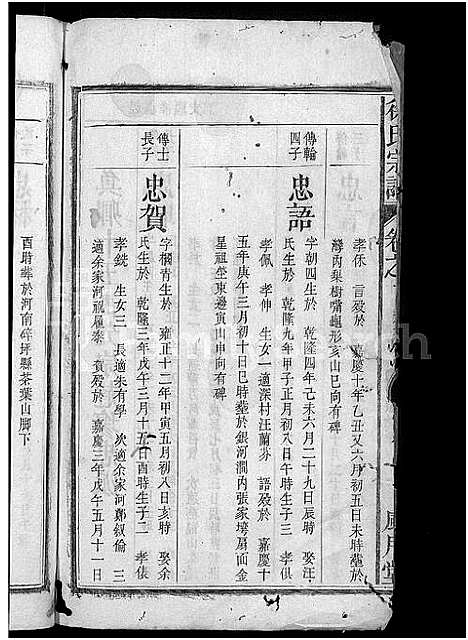 徐氏宗譜
卷之
孝倧 言歿於 嘉慶十年乙丑又六月初五日未時葬於
灣內梨樹嘴龜形亥山巳向有碑
傳翰四子
忠語
字朝四生於 乾隆四年己未六月二十九日辰時 娶汪
氏生於 乾隆九年甲子正月初八日午時生子三 孝俱
孝佩 孝伸 生女一適深村汪蘭芬 語歿於 嘉慶十
五年庚午三月初十日巳時葬於銀河澗內張家塝扇面金
星祖塋東邊寅山申向有碑
傳士長子
忠賀
字橺青生於 雍正十二年甲寅五月初八亥時 娶余
氏生於 乾隆三年戊午三月十五日酉時生子二 孝俵
孝銑 生女三 長適朱有學 次適余家河鄭叙倫 三
適余家河祝履泰 賀歿於 嘉慶三年戊午五月十一日
酉時葬於河南碎坪縣茶葉山腳下